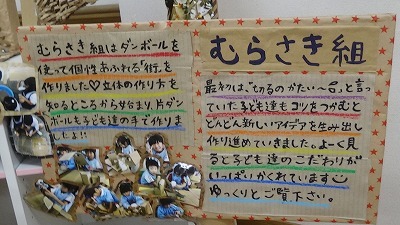 むらさき組はダンボールを
使って個性あふれる「街」を
作りました♡立体の作り方を
知るところから始まり、片ダン
ボールも子ども達の手で作りま
したよ!!
むらさき組
最初は、「切るのかたい～😣」と言っ
ていた子ども達もコツをつかむと
どんどん新しいアイデアを生み出し
作り進めていきました。よーく見
ると子ども達のこだわりが
いっぱいかくれています☺
ゆっくりとご覧下さい。